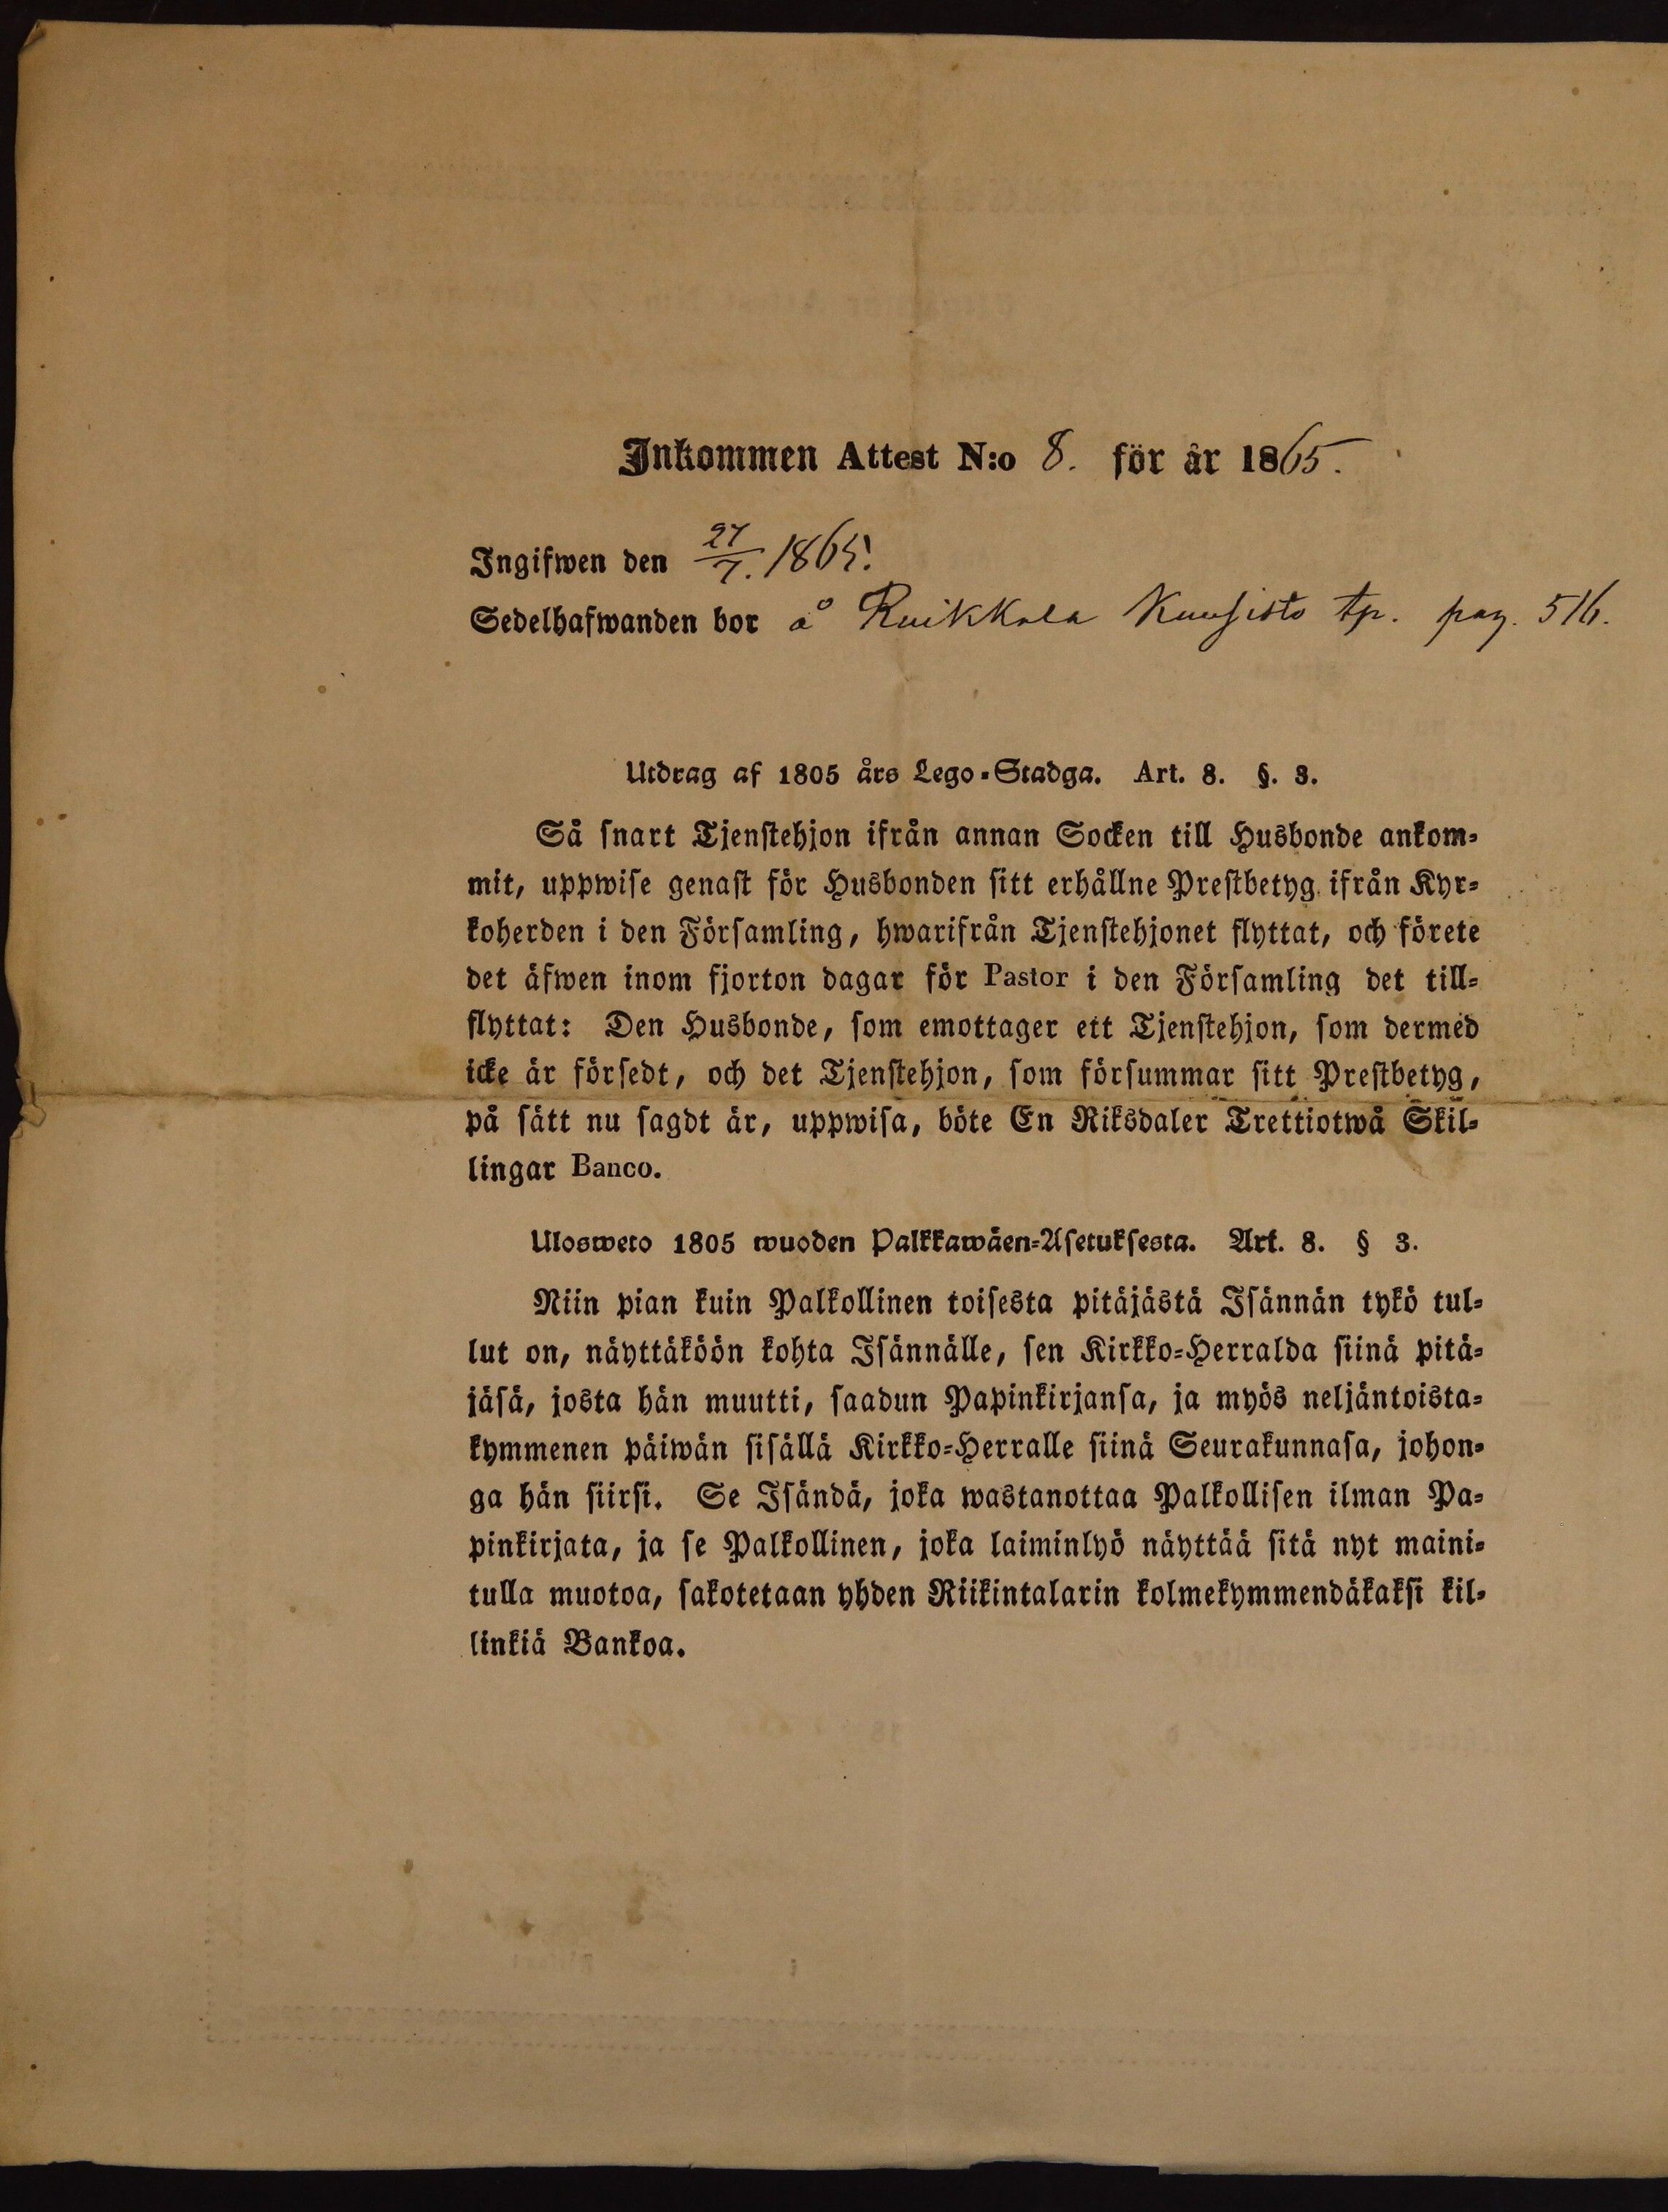 Inkommen Attest N:o 8. för år 1865.
Ingifwen den 27/7. 1865.
Sedelhafwanden bor å Ruikkala Kuusisto tp. pag. 516.
Utdrag af 1805 års Lego-Stadga. Art. 8. §. 3.
Så snart Tjenstehjon ifrån annan Socken till Husbonde ankom-
mit, uppwise genast för Husbonden sitt erhållne Prestbetyg ifrån Kyr-
koherden i den Församling, hwarifrån Tjenstehjonet flyttat, och förete
det äfwen inom fjorton dagar för Pastor i den Församling det till-
flyttat: Den Husbonde, som emottager ett Tjenstehjon, som dermed
icke är försedt, och det Tjenstehjon, som försummar sitt Prestbetyg,
på sätt nu sagdt är, uppwisa, böte En Riksdaler Trettiotwå Skil-
lingar Banco.
Ulosweto 1805 wuoden Palkkawäen-Asetuksesta. Art. 8. § 3.
Niin pian kuin Palkollinen toisesta pitäjästä Isännän tykö tul-
lut on, näyttäköön kohta Isännälle, sen Kirkko-Herralda siinä pitä-
jäsä, josta hän muutti, saadun Papinkirjansa, ja myös neljäntoista-
kymmenen päiwän sisällä Kirkko-Herralle siinä Seurakunnasa, johon-
ga hän siirsi. Se Isändä, joka wastanottaa Palkollisen ilman Pa-
pinkirjata, ja se Palkollinen, joka laiminlyö näyttää sitä nyt maini-
tulla muotoa, sakotetaan yhden Riikintalarin kolmekymmendäkaksi kil-
linkiä Bankoa.